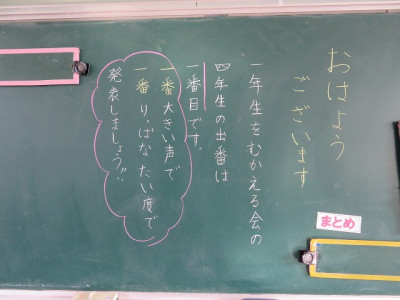 おはよう
ございます
一年生をむかえる会の
四年生の出番は
一番目です。
一番大きい声で
一番りっぱなたい度で
発表しましょう!!
まとめ